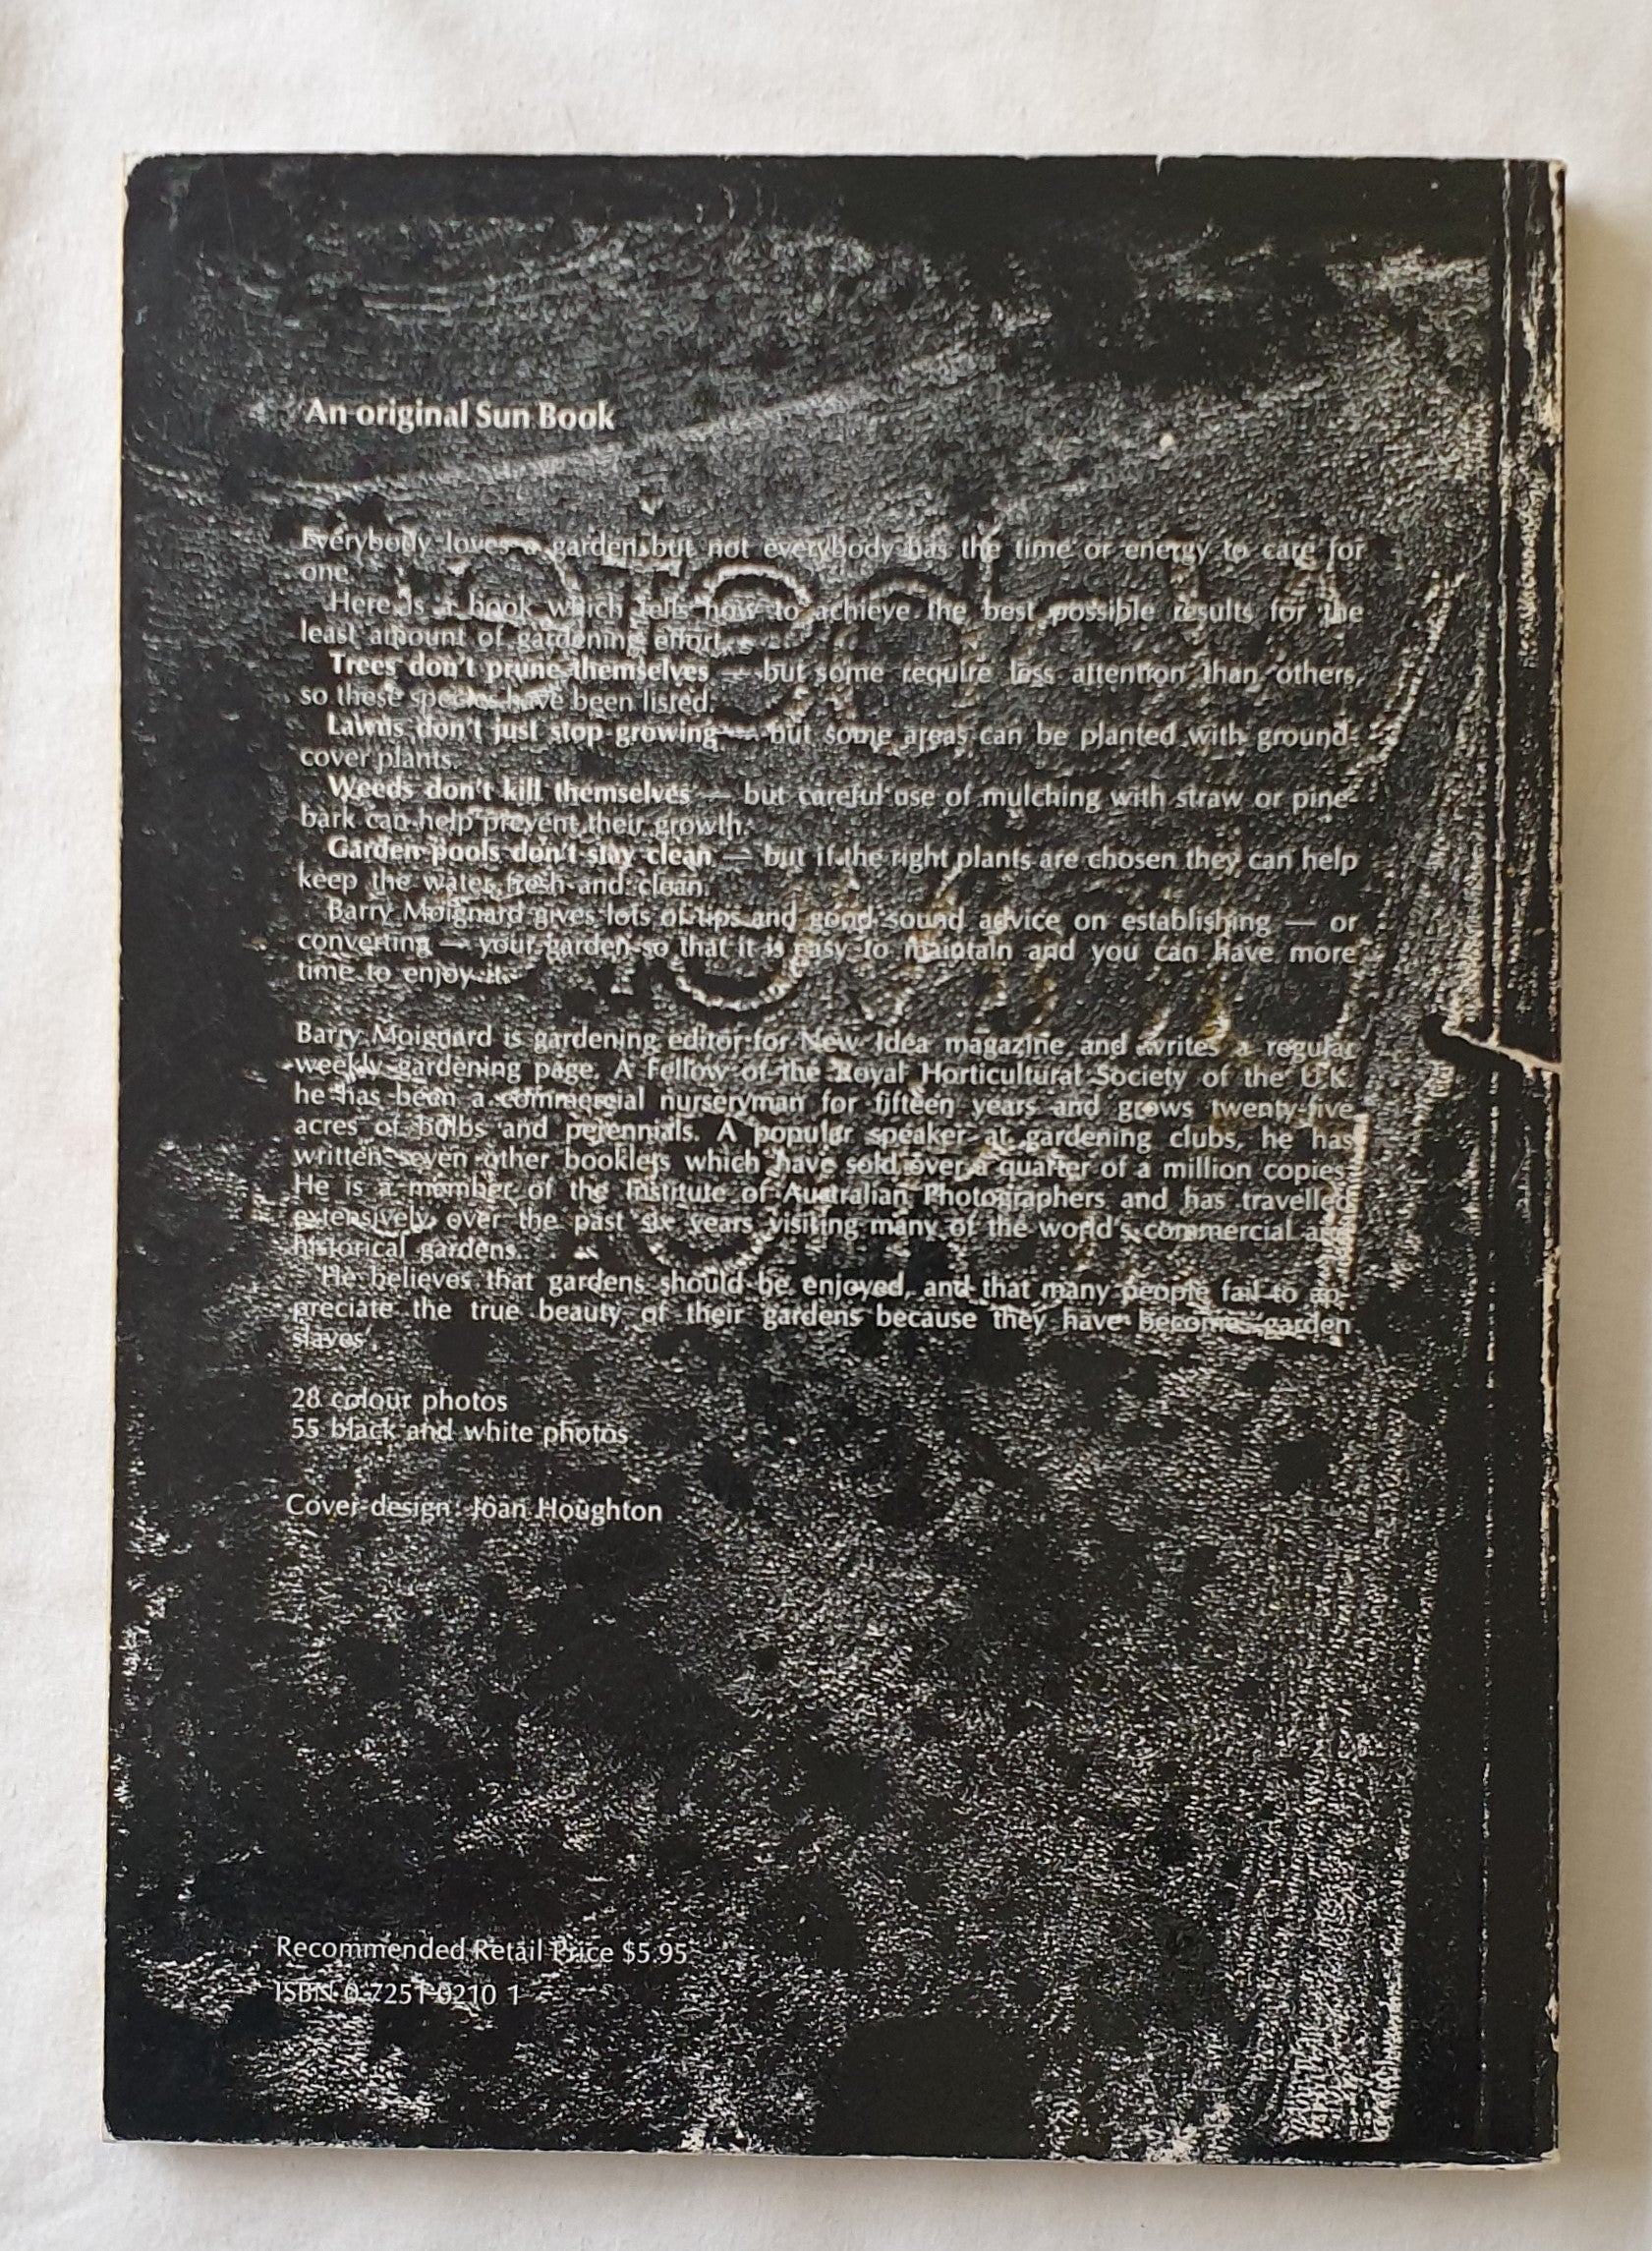 An original Sun Book
Everybody loves a garden but not everybody has the time or energy to care for
one.
Here is a book which tells how to achieve the best possible results for the
least amount of gardening effort.
Trees don't prune themselves — but some require less attention than others,
so these species have been listed.
Lawns don't just stop growing — but some areas can be planted with ground-
cover plants.
Weeds don't kill themselves — but careful use of mulching with straw or pine-
bark can help prevent their growth.
Garden pools don't stay clean — but if the right plants are chosen they can help
keep the water fresh and clean.
Barry Moignard gives lots of tips and good sound advice on establishing — or
converting — your garden so that it is easy to maintain and you can have more
time to enjoy it.
Barry Moignard is gardening editor for New Idea magazine and writes a regular
weekly gardening page. A Fellow of the Royal Horticultural Society of the U.K.
he has been a commercial nurseryman for fifteen years and grows twenty-five
acres of bulbs and perennials. A popular speaker at gardening clubs, he has
written seven other booklets which have sold over a quarter of a million copies.
He is a member of the Institute of Australian Photographers and has travelled
extensively over the past six years visiting many of the world's commercial and
historical gardens.
He believes that gardens should be enjoyed, and that many people fail to ap-
preciate the true beauty of their gardens because they have become 'garden
slaves'.
28 colour photos
55 black and white photos
Cover design: Joan Houghton
Recommended Retail Price $5.95
ISBN 0 7251 0210 1